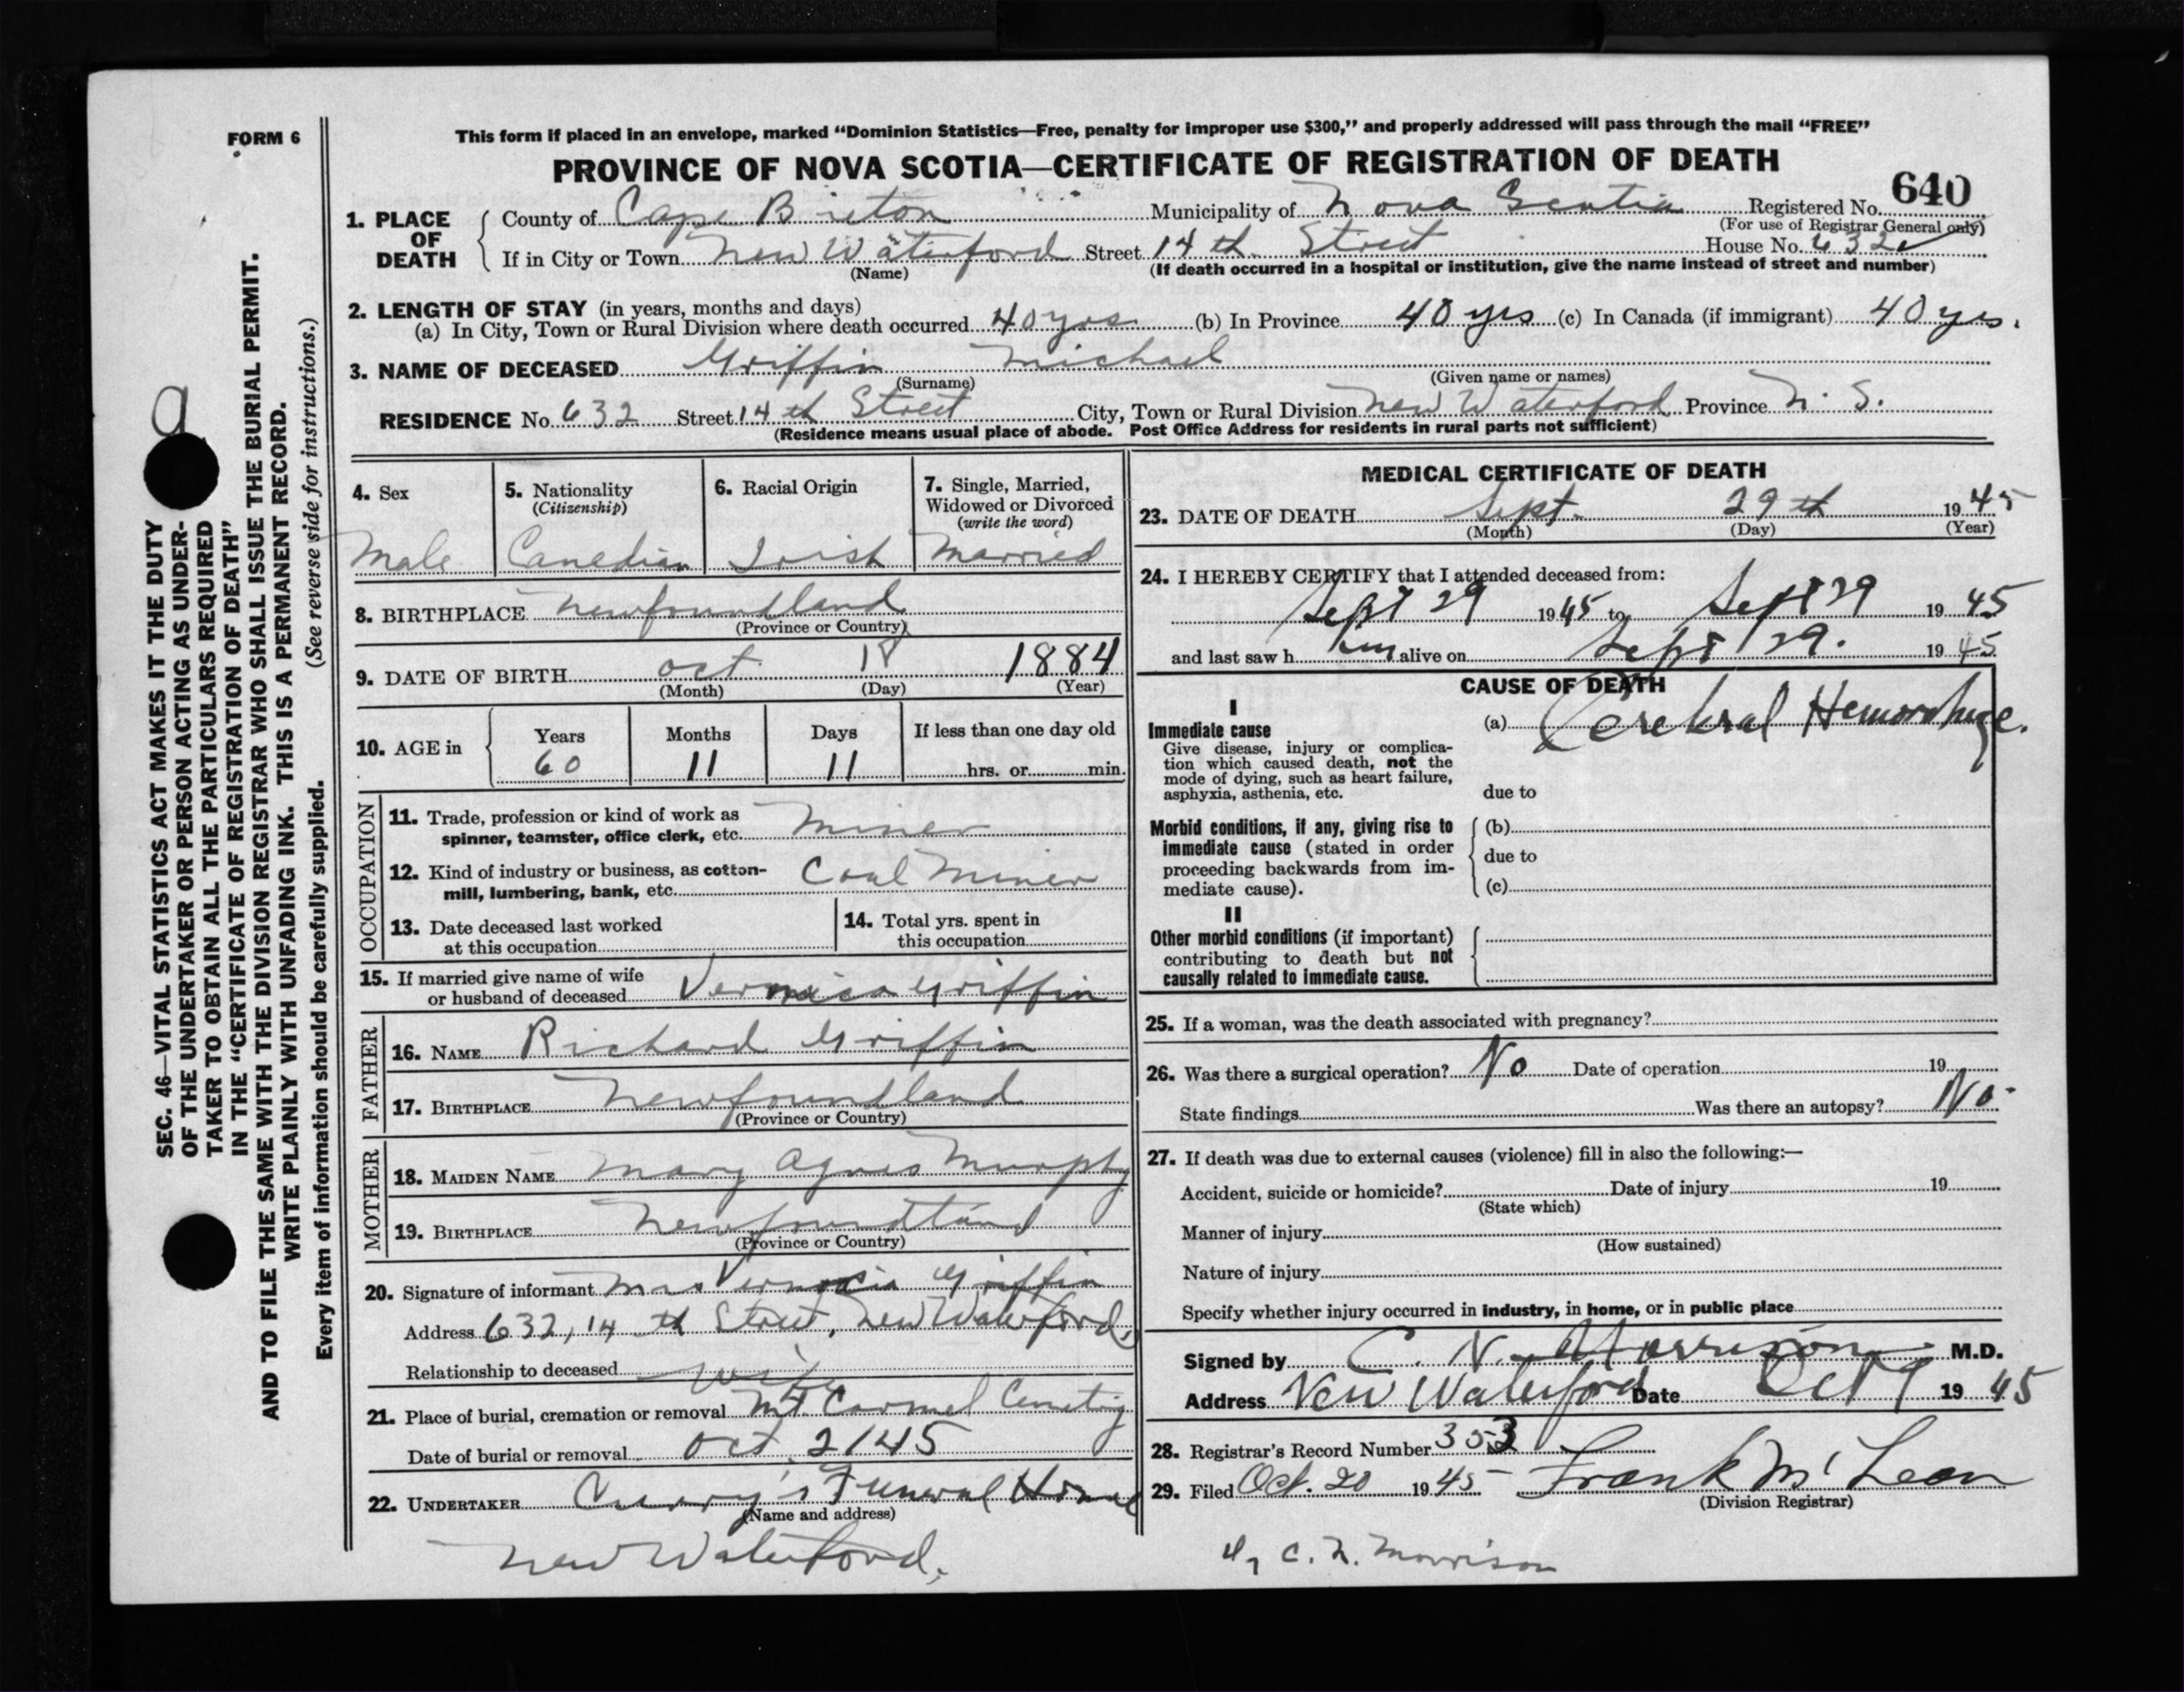 FORM 6
This form if placed in an envelope, marked “Dominion Statistics—Free, penalty for improper use $300,” and properly addressed will pass through the mail “FREE”
PROVINCE OF NOVA SCOTIA—CERTIFICATE OF REGISTRATION OF DEATH
640
1. PLACE OF DEATH
County of Cape Breton Municipality of Nova Scotia Registered No.
(For use of Registrar General only)
If in City or Town New Waterford Street 14 th Street House No. 632
(Name) (If death occurred in a hospital or institution, give the name instead of street and number)
2. LENGTH OF STAY (in years, months and days)
(a) In City, Town or Rural Division where death occurred 40 yrs (b) In Province 40 yrs (c) In Canada (if immigrant) 40 yrs.
3. NAME OF DECEASED Griffin Michael
(Surname) (Given name or names)
RESIDENCE No. 632 Street 14 th Street City, Town or Rural Division New Waterford Province N. S.
(Residence means usual place of abode. Post Office Address for residents in rural parts not sufficient)
4. Sex
Male
5. Nationality
(Citizenship)
Canedian
6. Racial Origin
Irish
7. Single, Married,
Widowed or Divorced
(write the word)
Married
8. BIRTHPLACE Newfoundland
(Province or Country)
9. DATE OF BIRTH Oct 18 1884
(Month) (Day) (Year)
10. AGE in
Years Months Days If less than one day old
60 11 11 hrs. or min.
OCCUPATION
11. Trade, profession or kind of work as
spinner, teamster, office clerk, etc. Miner
12. Kind of industry or business, as cotton-
mill, lumbering, bank, etc. Coal Miner
13. Date deceased last worked
at this occupation
14. Total yrs. spent in
this occupation
15. If married give name of wife
or husband of deceased Vernica Griffin
FATHER
16. NAME Richard Griffin
17. BIRTHPLACE Newfoundland
(Province or Country)
MOTHER
18. MAIDEN NAME Mary Agnes Murphy
19. BIRTHPLACE Newfoundland
(Province or Country)
20. Signature of informant Mrs Griffin
Address 632, 14 th Street, New Waterford,
Relationship to deceased Wife
21. Place of burial, cremation or removal Mt. Carmel Cemetry
Date of burial or removal Oct 2/45
22. UNDERTAKER Curry's Funeral Home
(Name and address)
New Waterford.
MEDICAL CERTIFICATE OF DEATH
23. DATE OF DEATH Sept. 29 th 1945
(Month) (Day) (Year)
24. I HEREBY CERTIFY that I attended deceased from:
Sept 29 1945 to Sept 29 1945
and last saw h im alive on Sept 29. 1945
CAUSE OF DEATH
I
Immediate cause
Give disease, injury or complica-
tion which caused death, not the
mode of dying, such as heart failure,
asphyxia, asthenia, etc.
(a) Cerebral Hemorrhage.
due to
Morbid conditions, if any, giving rise to
immediate cause (stated in order
proceeding backwards from im-
mediate cause).
(b)
due to
(c)
II
Other morbid conditions (if important)
contributing to death but not
causally related to immediate cause.
25. If a woman, was the death associated with pregnancy?
26. Was there a surgical operation? No Date of operation 19
State findings Was there an autopsy? No.
27. If death was due to external causes (violence) fill in also the following:—
Accident, suicide or homicide? Date of injury 19
(State which)
Manner of injury
(How sustained)
Nature of injury
Specify whether injury occurred in industry, in home, or in public place
Signed by C. N. Morrison M.D.
Address New Waterford Date Oct 9 1945
28. Registrar's Record Number 353
29. Filed Oct. 20 1945 Frank McLean
(Division Registrar)
C. N. Morrison
SEC. 46—VITAL STATISTICS ACT MAKES IT THE DUTY
OF THE UNDERTAKER OR PERSON ACTING AS UNDER-
TAKER TO OBTAIN ALL THE PARTICULARS REQUIRED
IN THE “CERTIFICATE OF REGISTRATION OF DEATH”
AND TO FILE THE SAME WITH THE DIVISION REGISTRAR WHO SHALL ISSUE THE BURIAL PERMIT.
WRITE PLAINLY WITH UNFADING INK. THIS IS A PERMANENT RECORD.
Every item of information should be carefully supplied. (See reverse side for instructions.)